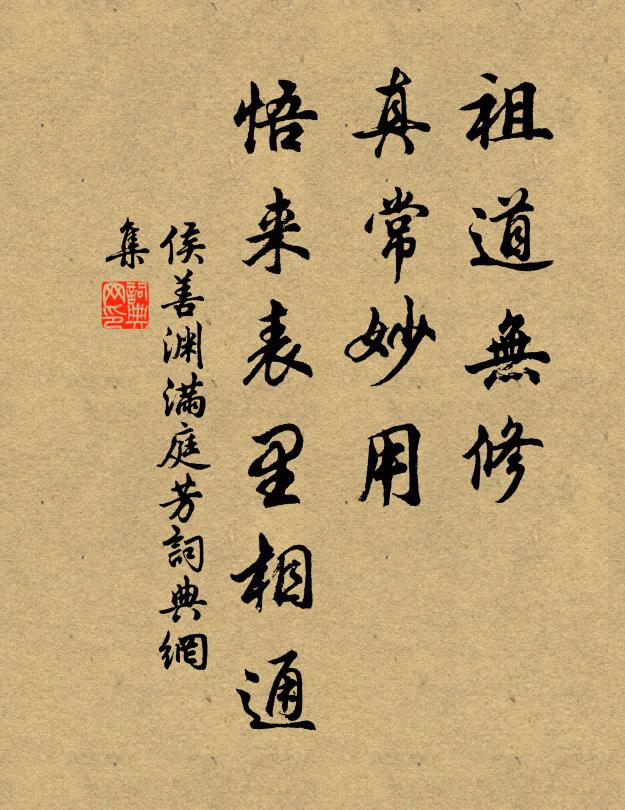 祖道無修
真常妙用
悟来表里相通
侯善渊满庭芳詞典網
集
詞典
网印